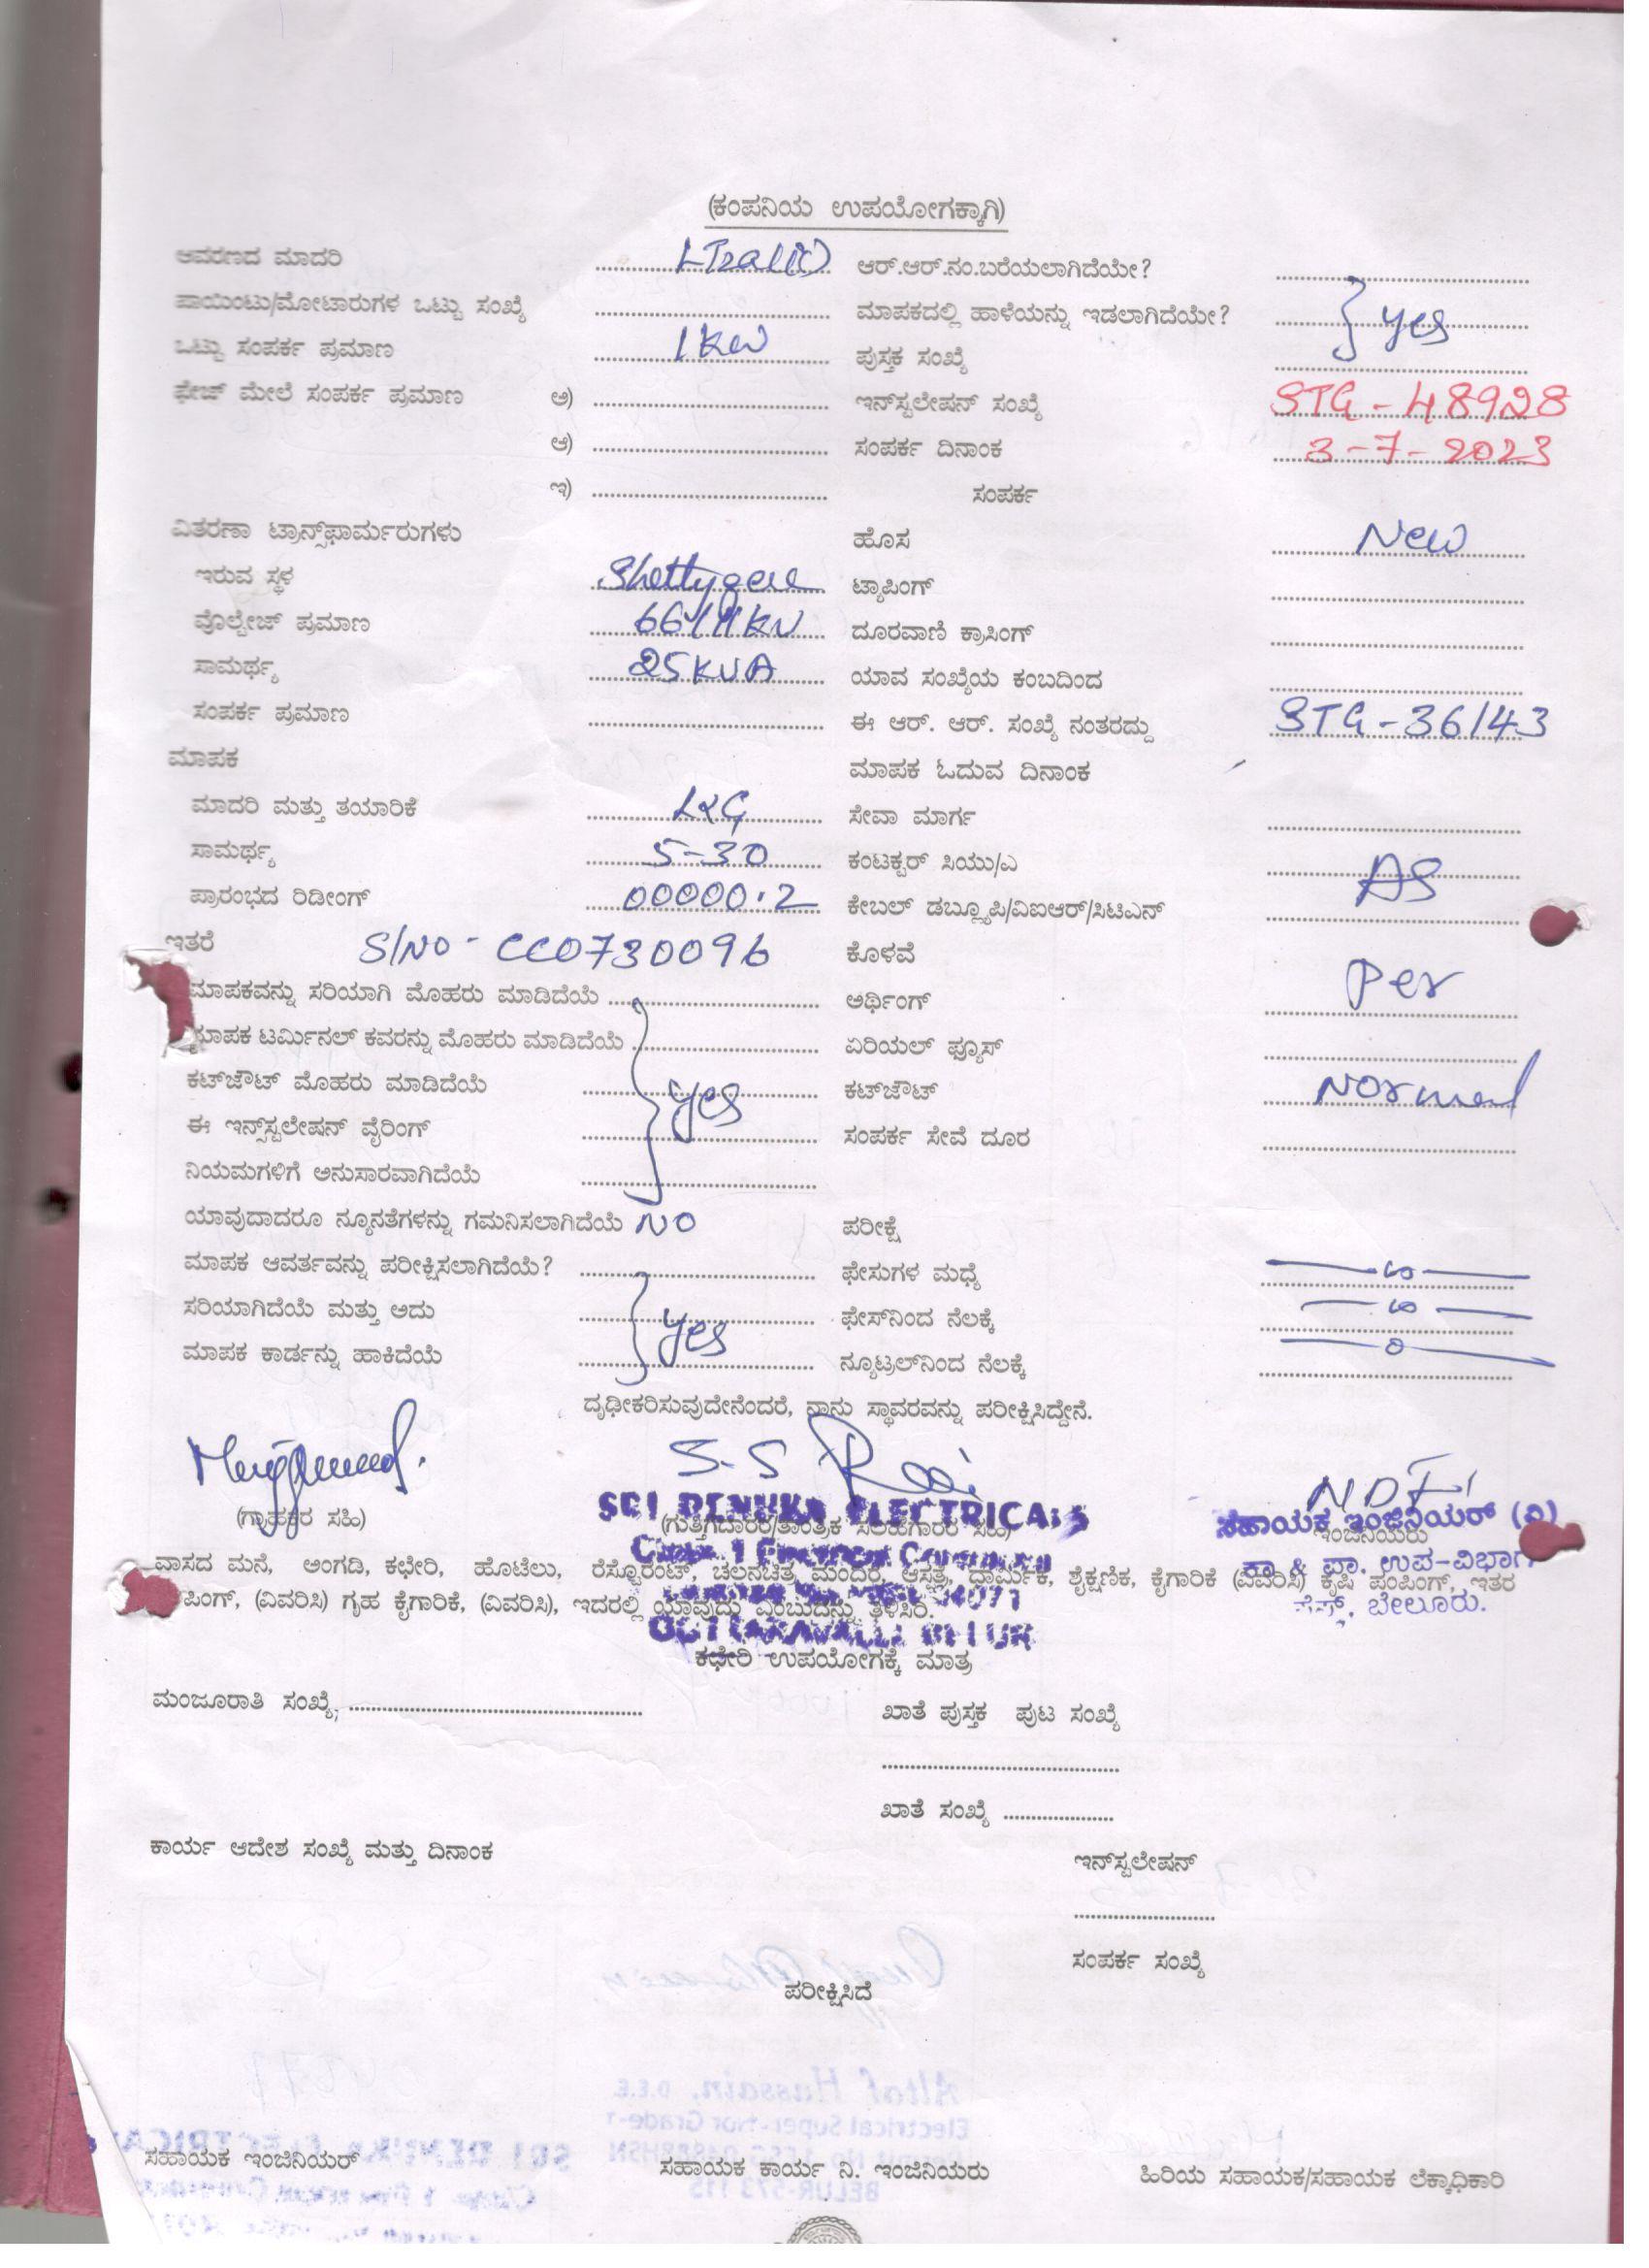 (ಕಂಪನಿಯ ಉಪಯೋಗಕ್ಕಾಗಿ)
ಆವರಣದ ಮಾದರಿ ಆರ್.ಆರ್.ನಂ.ಬರೆಯಲಾಗಿದೆಯೇ?
ಪಾಯಿಂಟು/ಮೋಟಾರುಗಳ ಒಟ್ಟು ಸಂಖ್ಯೆ ಮಾಪಕದಲ್ಲಿ ಹಾಳೆಯನ್ನು ಇಡಲಾಗಿದೆಯೇ? yes
ಒಟ್ಟು ಸಂಪರ್ಕ ಪ್ರಮಾಣ 1 KW ಪುಸ್ತಕ ಸಂಖ್ಯೆ
ಫೇಜ್ ಮೇಲೆ ಸಂಪರ್ಕ ಪ್ರಮಾಣ ಅ) ಇನ್‌ಸ್ಟಲೇಷನ್ ಸಂಖ್ಯೆ STG - 48928
ಆ) ಸಂಪರ್ಕ ದಿನಾಂಕ 3-7-2023
ಇ) ಸಂಪರ್ಕ
ವಿತರಣಾ ಟ್ರಾನ್ಸ್‌ಫಾರ್ಮರುಗಳು ಹೊಸ New
ಇರುವ ಸ್ಥಳ Shettygere ಟ್ಯಾಪಿಂಗ್
ವೊಲ್ಟೇಜ್ ಪ್ರಮಾಣ 66/11KV ದೂರವಾಣಿ ಕ್ರಾಸಿಂಗ್
ಸಾಮರ್ಥ್ಯ 25KVA ಯಾವ ಸಂಖ್ಯೆಯ ಕಂಬದಿಂದ
ಸಂಪರ್ಕ ಪ್ರಮಾಣ ಈ ಆರ್. ಆರ್. ಸಂಖ್ಯೆ ನಂತರದ್ದು STG-36143
ಮಾಪಕ ಮಾಪಕ ಓದುವ ದಿನಾಂಕ
ಮಾದರಿ ಮತ್ತು ತಯಾರಿಕೆ L&G ಸೇವಾ ಮಾರ್ಗ
ಸಾಮರ್ಥ್ಯ 5-30 ಕಂಟಕ್ಟರ್ ಸಿಯು/ಎ AS
ಪ್ರಾರಂಭದ ರಿಡೀಂಗ್ 00000.2 ಕೇಬಲ್ ಡಬ್ಲ್ಯೂಪಿ/ವಿಐಆರ್/ಸಿಟಿಎನ್
ಇತರೆ S/NO - CC0730096 ಕೊಳವೆ Per
ಮಾಪಕವನ್ನು ಸರಿಯಾಗಿ ಮೊಹರು ಮಾಡಿದೆಯೆ ಅರ್ಥಿಂಗ್
ಮಾಪಕ ಟರ್ಮಿನಲ್ ಕವರನ್ನು ಮೊಹರು ಮಾಡಿದೆಯೆ ಏರಿಯಲ್ ಫ್ಯೂಸ್
ಕಟ್‌ಜೌಟ್ ಮೊಹರು ಮಾಡಿದೆಯೆ yes ಕಟ್‌ಜೌಟ್ Normal
ಈ ಇನ್ಸ್‌ಸ್ಟಲೇಷನ್ ವೈರಿಂಗ್ ಸಂಪರ್ಕ ಸೇವೆ ದೂರ
ನಿಯಮಗಳಿಗೆ ಅನುಸಾರವಾಗಿದೆಯೆ
ಯಾವುದಾದರೂ ನ್ಯೂನತೆಗಳನ್ನು ಗಮನಿಸಲಾಗಿದೆಯೆ NO ಪರೀಕ್ಷೆ
ಮಾಪಕ ಆವರ್ತವನ್ನು ಪರೀಕ್ಷಿಸಲಾಗಿದೆಯೆ? ಫೇಸುಗಳ ಮಧ್ಯೆ ∞
ಸರಿಯಾಗಿದೆಯೆ ಮತ್ತು ಅದು yes ಫೇಸ್‌ನಿಂದ ನೆಲಕ್ಕೆ ∞
ಮಾಪಕ ಕಾರ್ಡನ್ನು ಹಾಕಿದೆಯೆ ನ್ಯೂಟ್ರಲ್‌ನಿಂದ ನೆಲಕ್ಕೆ 0
ದೃಢೀಕರಿಸುವುದೇನೆಂದರೆ, ನಾನು ಸ್ಥಾವರವನ್ನು ಪರೀಕ್ಷಿಸಿದ್ದೇನೆ.
S.S
SRI RENUKA ELECTRICALS ಸಹಾಯಕ ಇಂಜಿನಿಯರ್ (ವಿ)
(ಗ್ರಾಹಕರ ಸಹಿ) (ಗುತ್ತಿಗೆದಾರರ/ತಾಂತ್ರಿಕ ಸಲಹಾಗಾರರ ಸಹಿ) ಇಂಜಿನಿಯರು
ಕಾ & ಪಾ. ಉಪ-ವಿಭಾಗ
ವಾಸದ ಮನೆ, ಅಂಗಡಿ, ಕಛೇರಿ, ಹೊಟೆಲು, ರೆಸ್ಟೊರೆಂಟ್, ಚಲನಚಿತ್ರ ಮಂದಿರ, ಆಸ್ಪತ್ರೆ, ಧಾರ್ಮಿಕ, ಶೈಕ್ಷಣಿಕ, ಕೈಗಾರಿಕೆ (ವಿವರಿಸಿ) ಕೃಷಿ ಪಂಪಿಂಗ್, ಇತರ
ಪಿಂಗ್, (ವಿವರಿಸಿ) ಗೃಹ ಕೈಗಾರಿಕೆ, (ವಿವರಿಸಿ), ಇದರಲ್ಲಿ ಯಾವುದು ಎಂಬುದನ್ನು ತಿಳಿಸಿರಿ. ಬೇಲೂರು.
ಕಛೇರಿ ಉಪಯೋಗಕ್ಕೆ ಮಾತ್ರ
ಮಂಜೂರಾತಿ ಸಂಖ್ಯೆ, ಖಾತೆ ಪುಸ್ತಕ ಪುಟ ಸಂಖ್ಯೆ
ಖಾತೆ ಸಂಖ್ಯೆ
ಕಾರ್ಯ ಆದೇಶ ಸಂಖ್ಯೆ ಮತ್ತು ದಿನಾಂಕ ಇನ್‌ಸ್ಟಲೇಷನ್
ಸಂಪರ್ಕ ಸಂಖ್ಯೆ
ಪರೀಕ್ಷಿಸಿದೆ
ಸಹಾಯಕ ಇಂಜಿನಿಯರ್ ಸಹಾಯಕ ಕಾರ್ಯ ನಿ. ಇಂಜಿನಿಯರು ಹಿರಿಯ ಸಹಾಯಕ/ಸಹಾಯಕ ಲೆಕ್ಕಾಧಿಕಾರಿ